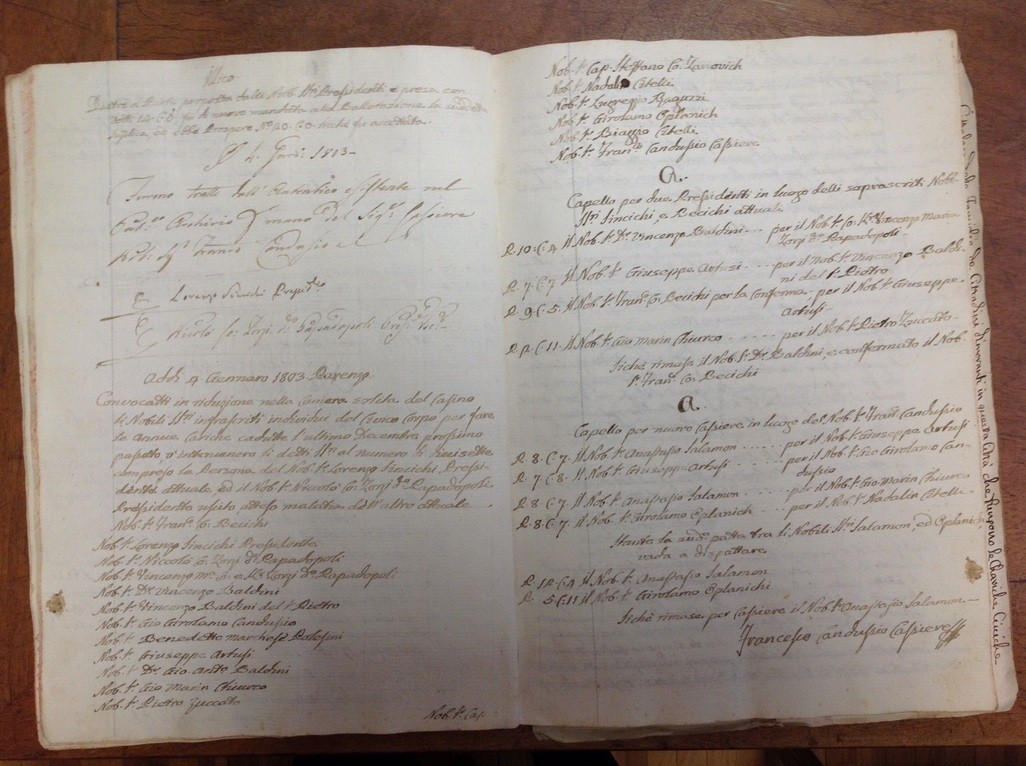 Dietro a Parte proposta dalli Nob. Ssri Presidenti e presa con
fu di nuovo mandata alla Ballotazione la
Supplica, ed ebbe Prospere No. 20. C. 0. restò fu accettata.
4. 1813
tratto dall' Autentico esistente nel
Archivio mano del Sigr. Cassiere
Franco Candusio
Lorenzo Sincich Presidte
Nicolò Co. Zorzi Do. Papadopoli
Addi 4 Gennaro 1803 Parenzo
Convocatti in riduzione nella camera solita del casino
li Nobili Ssri infrascriti individui del Civico Corpo per fare
le annue cariche cadutte l'ultimo Decembre prossimo
passato v'intervenero li detti Ssri al numero di Diecisette
compreso la Persona del Nob. Sr. Lorenzo Sincich Presi-
dente attuale, ed il Nob. Sr. Niccolò Co. Zorzi Do. Papadopoli
Presidente uscito atteso malattia dell' altro attuale
Nob. Sr. Franco Co. Becich
Nob. Sr. Lorenzo Sincich Presidente
Nob. Sr. Niccolò Co. Zorzi Do. Papadopoli
Nob. Sr. Vincenzo Ma. Co. Kr. Zorzi Do. Papadopoli
Nob. Sr. Dr. Vincenzo Baldini
Nob. Sr. Vincenzo Baldini del Sr. Pietro
Nob. Sr. Gio Girolamo Candusio
Nob. Sr. Benedetto Marchese Polesini
Nob. Sr. Giuseppe Artusi
Nob. Sr. Dr. Gio. Anto. Baldini
Nob. Sr. Gio Marin Chiurco
Nob. Sr. Pietro Zuccato
Nob. Sr. Cap.
Nob. Sr. Cap. Steffano Co. Zanovich
Nob. Sr. Nadalin Citelli
Nob. Sr. Lugrezio Ragazzi
Nob. Sr. Girolamo Oplanich
Nob. Sr. Biaggio Citelli
Nob. Sr. Franco Candussio Cassiere
A.
Capello per due Presidenti in luogo delli soprascriti Nobli
Ssri Sincich, e Becich attuali
P. 10. C. 4 Il Nob. Sr. Dr. Vincenzo Baldini --- per il Nob. Sr. Co. Kr. Vincenzo Maria
Zorzi Do. Papadopoli
P. 7. C. 7 Il Nob. Sr. Giuseppe Artusi ---- per il Nob. Sr. Vincenzo Baldi-
ni del Sr. Pietro
P. 9. C. 5. Il Nob. Sr. Franco Co. Becich per la conferma, per il Nob. Sr. Giuseppe
Artusi
P. C. 11. Il Nob. Sr. Gio Marin Chiurco --- per il Nob. Sr. Pietro Zuccato
Sichè rimase il Nob. Sr. Dr. Baldini, e confermato il Nob.
Sr. Franco Co. Becich
A.
Capello per nuovo Cassiere in luogo del Nob. Sr. Franco Candussio
P. 8. C. 7. Il Nob. Sr. Anastasio Salamon --- per il Nob. Sr. Giuseppe Artusi
P. 7. C. 8. Il Nob. Sr. Giuseppe Artusi --- per il Nob. Sr. Gio Girolamo Can-
dussio
P. 8. C. 7. Il Nob. Sr. Anastasio Salamon ---- per il Nob. Sr. Gio. Marin Chiurco
P. 8. C. 7. Il Nob. Sr. Girolamo Oplanich ---- per il Nob. Sr. Nadalin Citelli
Stante la patta tra li Nobili Ssri Salamon, ed Oplanich
vada a dispattare
P. C. Il Nob. Sr. Anastasio Salamon
P. 5. C. 11. Il Nob. Sr. Girolamo Oplanich
Sichè rimase per Cassiere il Nob. Sr. Anastasio Salamon
Francesco Candussio Cassiere
Cittadini dimoranti in questa Città che fungono le Cariche Civiche